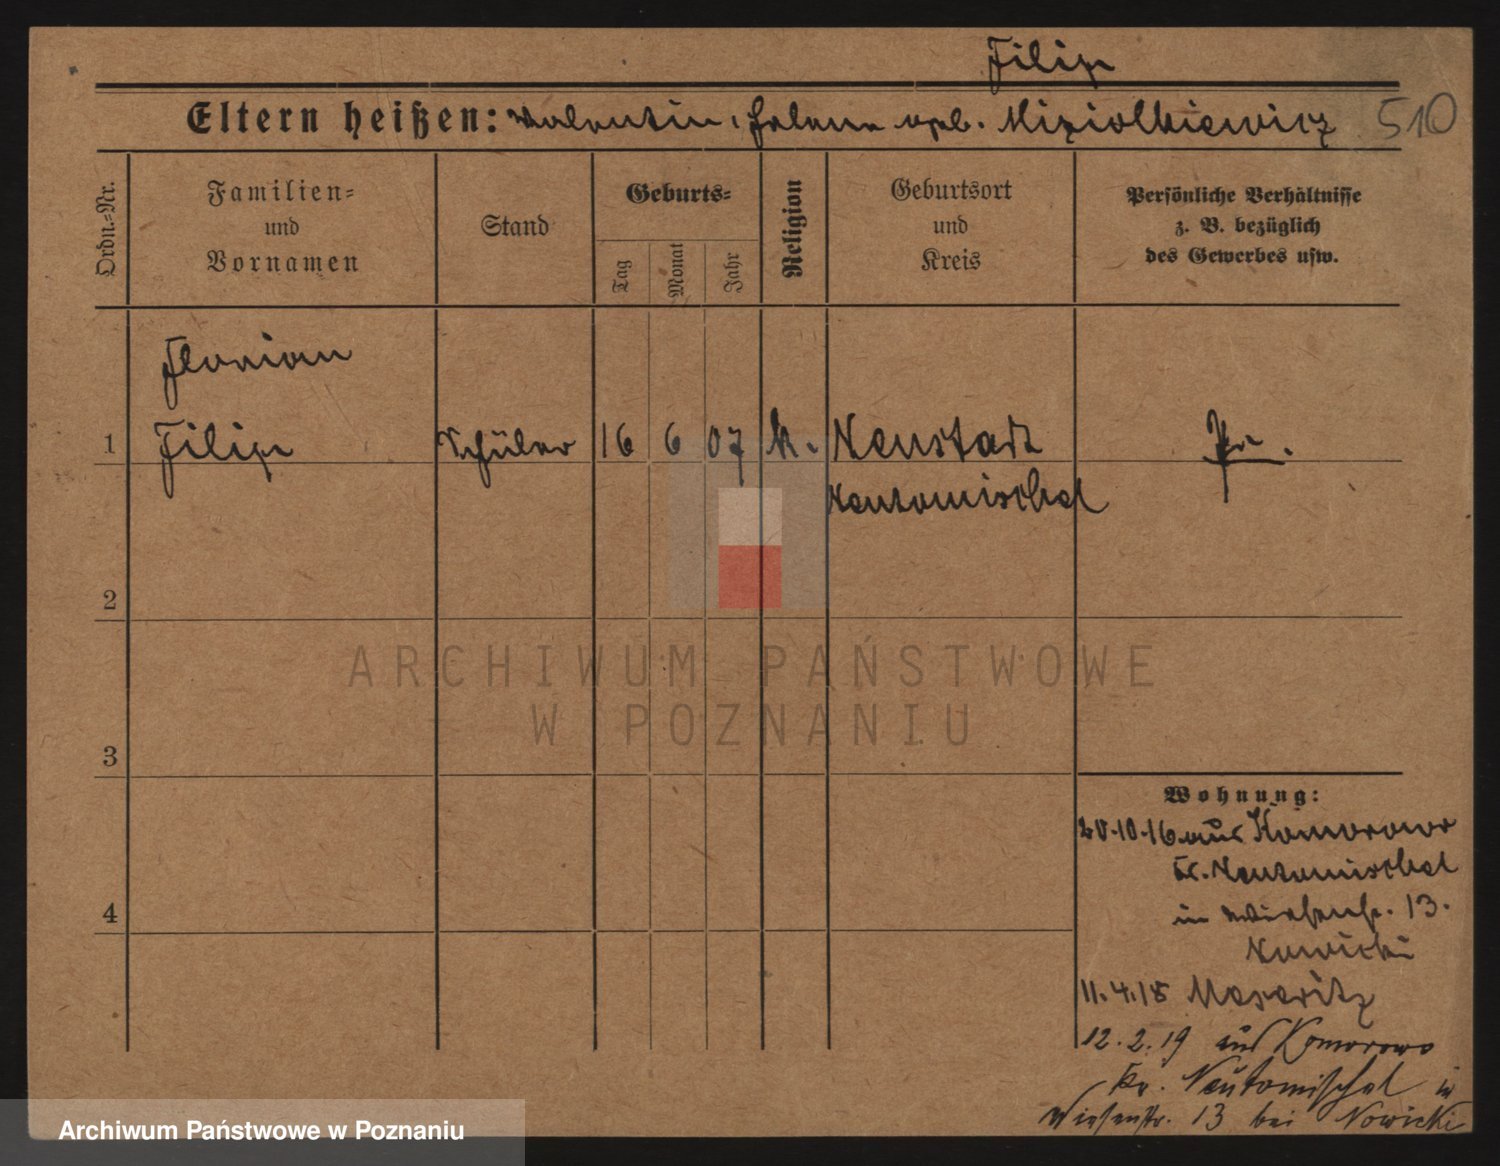 Filip
Eltern heißen: Valentin, Helene geb. Miziolkiewicz 510
Ordn.-Nr.
Familien-
und
Vornamen
Stand
Geburts-
Tag
Monat
Jahr
Religion
Geburtsort
und
Kreis
Persönliche Verhältnisse
z. B. bezüglich
des Gewerbes usw.
Florian
1 Filip Schüler 16 6 07 k. Neustadt Pr.
Neutomischel
2
ARCHIWUM PAŃSTWOWE
W POZNANIU
3
Wohnung:
20.10.16 aus Komorowo
Kr. Neutomischel
in Wiesenstr. 13.
4
Nowicki
11.4.18 Meseritz
12.2.19 aus Komorowo
Kr. Neutomischel in
Wiesenstr. 13 bei Nowicki
Archiwum Państwowe w Poznaniu